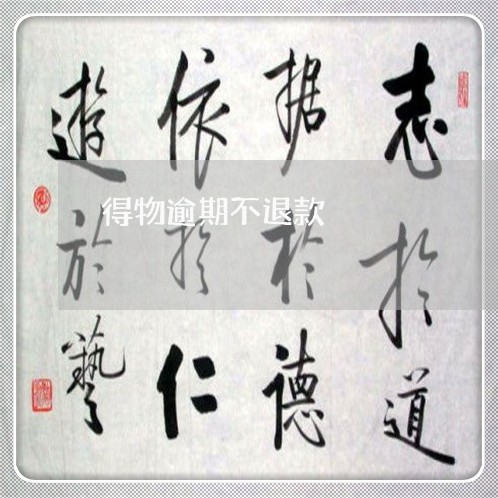 志於道
据於德
依於仁
遊於藝
得物逾期不退款